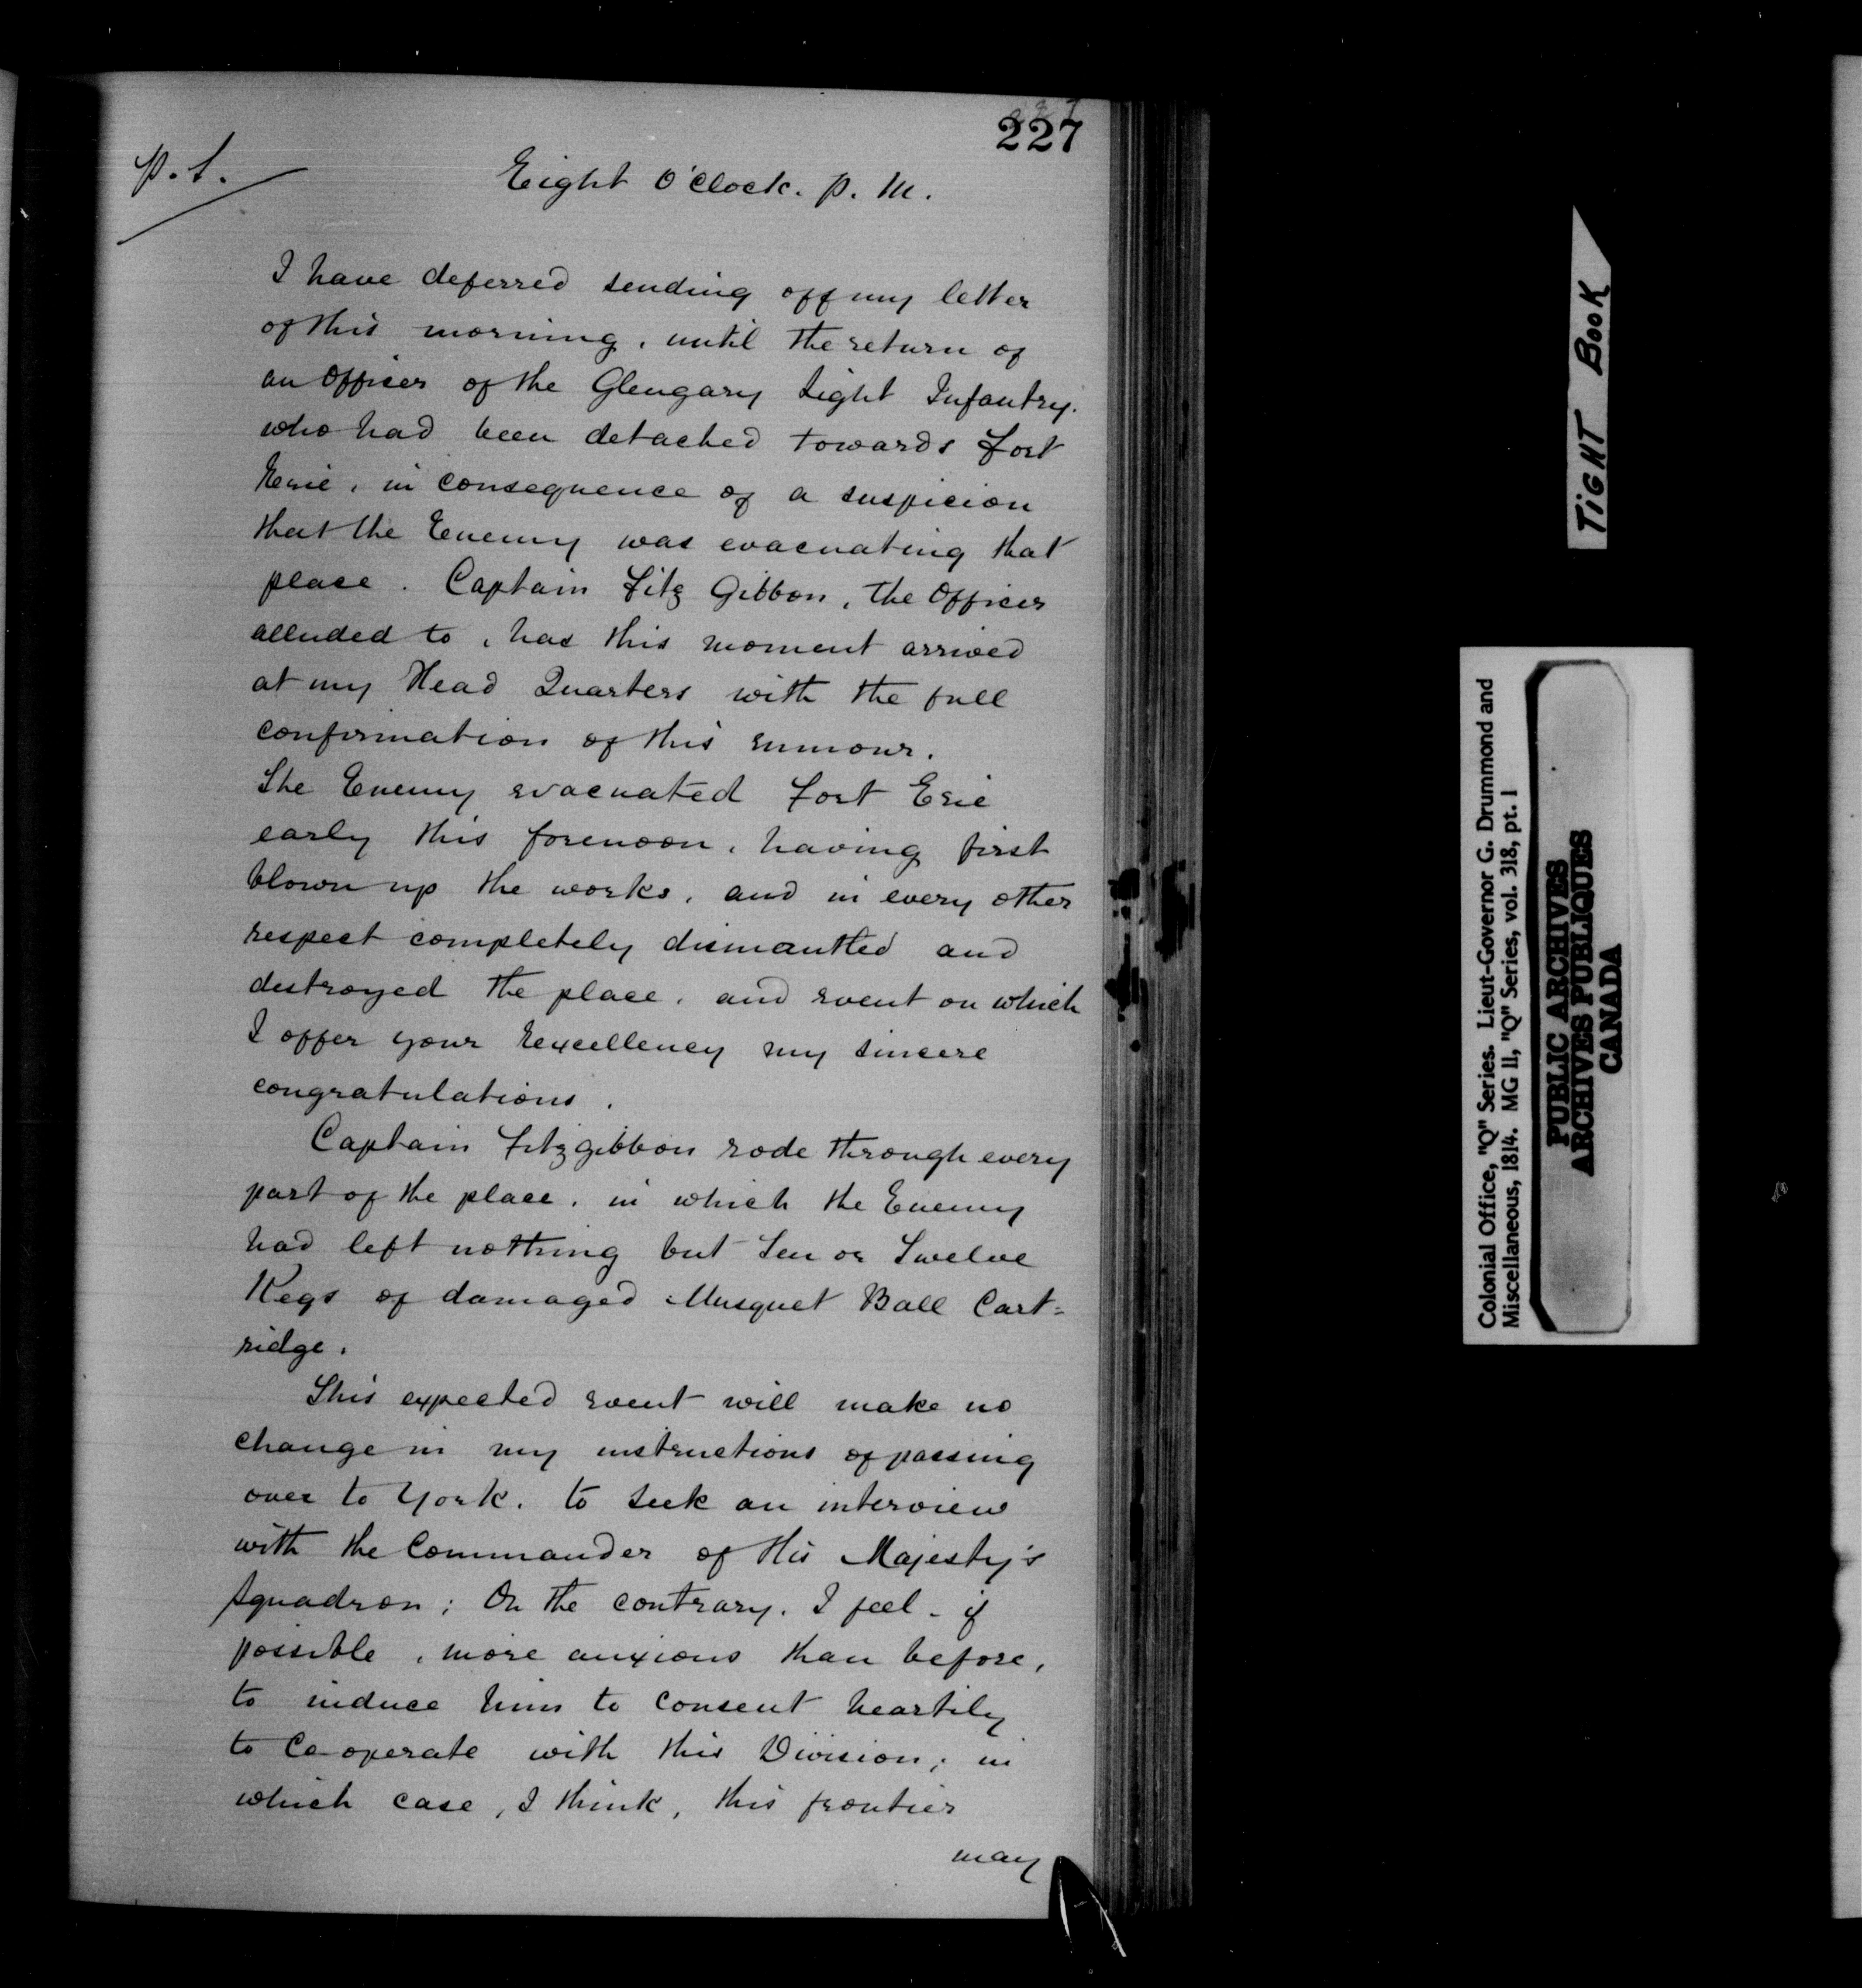 227
P.S.
Eight O'Clock. P.M.
I have deferred sending off my letter
of this morning, until the return of
an Officer of the Glengary Light Infantry.
who had been detached towards Fort
Erie, in consequence of a suspicion
that the Enemy was evacuating that
place. Captain Fitz Gibbon, the Officer
alluded to, has this moment arrived
at my Head Quarters with the full
confirmation of this rumour.
The Enemy evacuated Fort Erie
early this forenoon, having first
blown up the works, and in every other
respect completely dismantled and
destroyed the place, and event on which
I offer your Excellency my sincere
congratulations.
Captain Fitzgibbon rode through every
part of the place, in which the Enemy
had left nothing but Ten or Twelve
Kegs of damaged Musquet Ball Cart=
ridge.
This expected event will make no
change in my instructions of passing
over to York, to seek an interview
with the Commander of His Majesty's
Squadron; On the contrary, I feel - if
possible, more anxious than before,
to induce him to consent heartily
to Co-operate with this Division; in
which case, I think, this frontier
may
TIGHT BOOK
Colonial Office, "Q" Series. Lieut-Governor G. Drummond and
Miscellaneous, 1814. MG 11, "Q" Series, vol. 318, pt. 1
PUBLIC ARCHIVES
ARCHIVES PUBLIQUES
CANADA